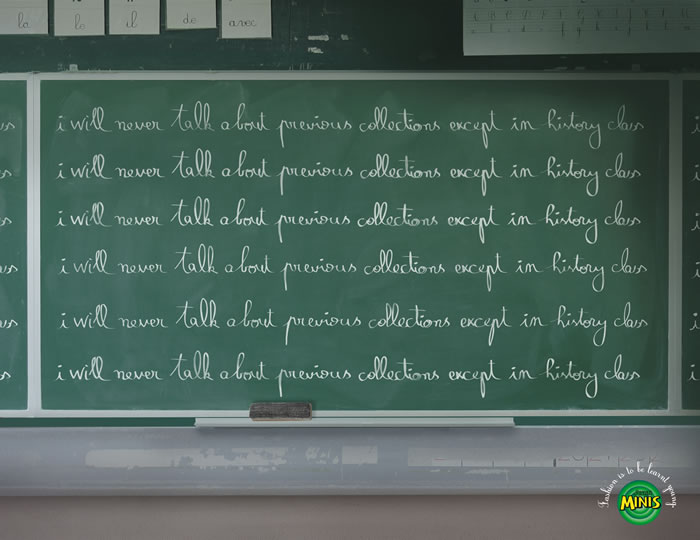 la
le
il
de
avec
i will never talk about previous collections except in history class
i will never talk about previous collections except in history class
i will never talk about previous collections except in history class
i will never talk about previous collections except in history class
i will never talk about previous collections except in history class
i will never talk about previous collections except in history class
Fashion is to be learnt young.
MINIS